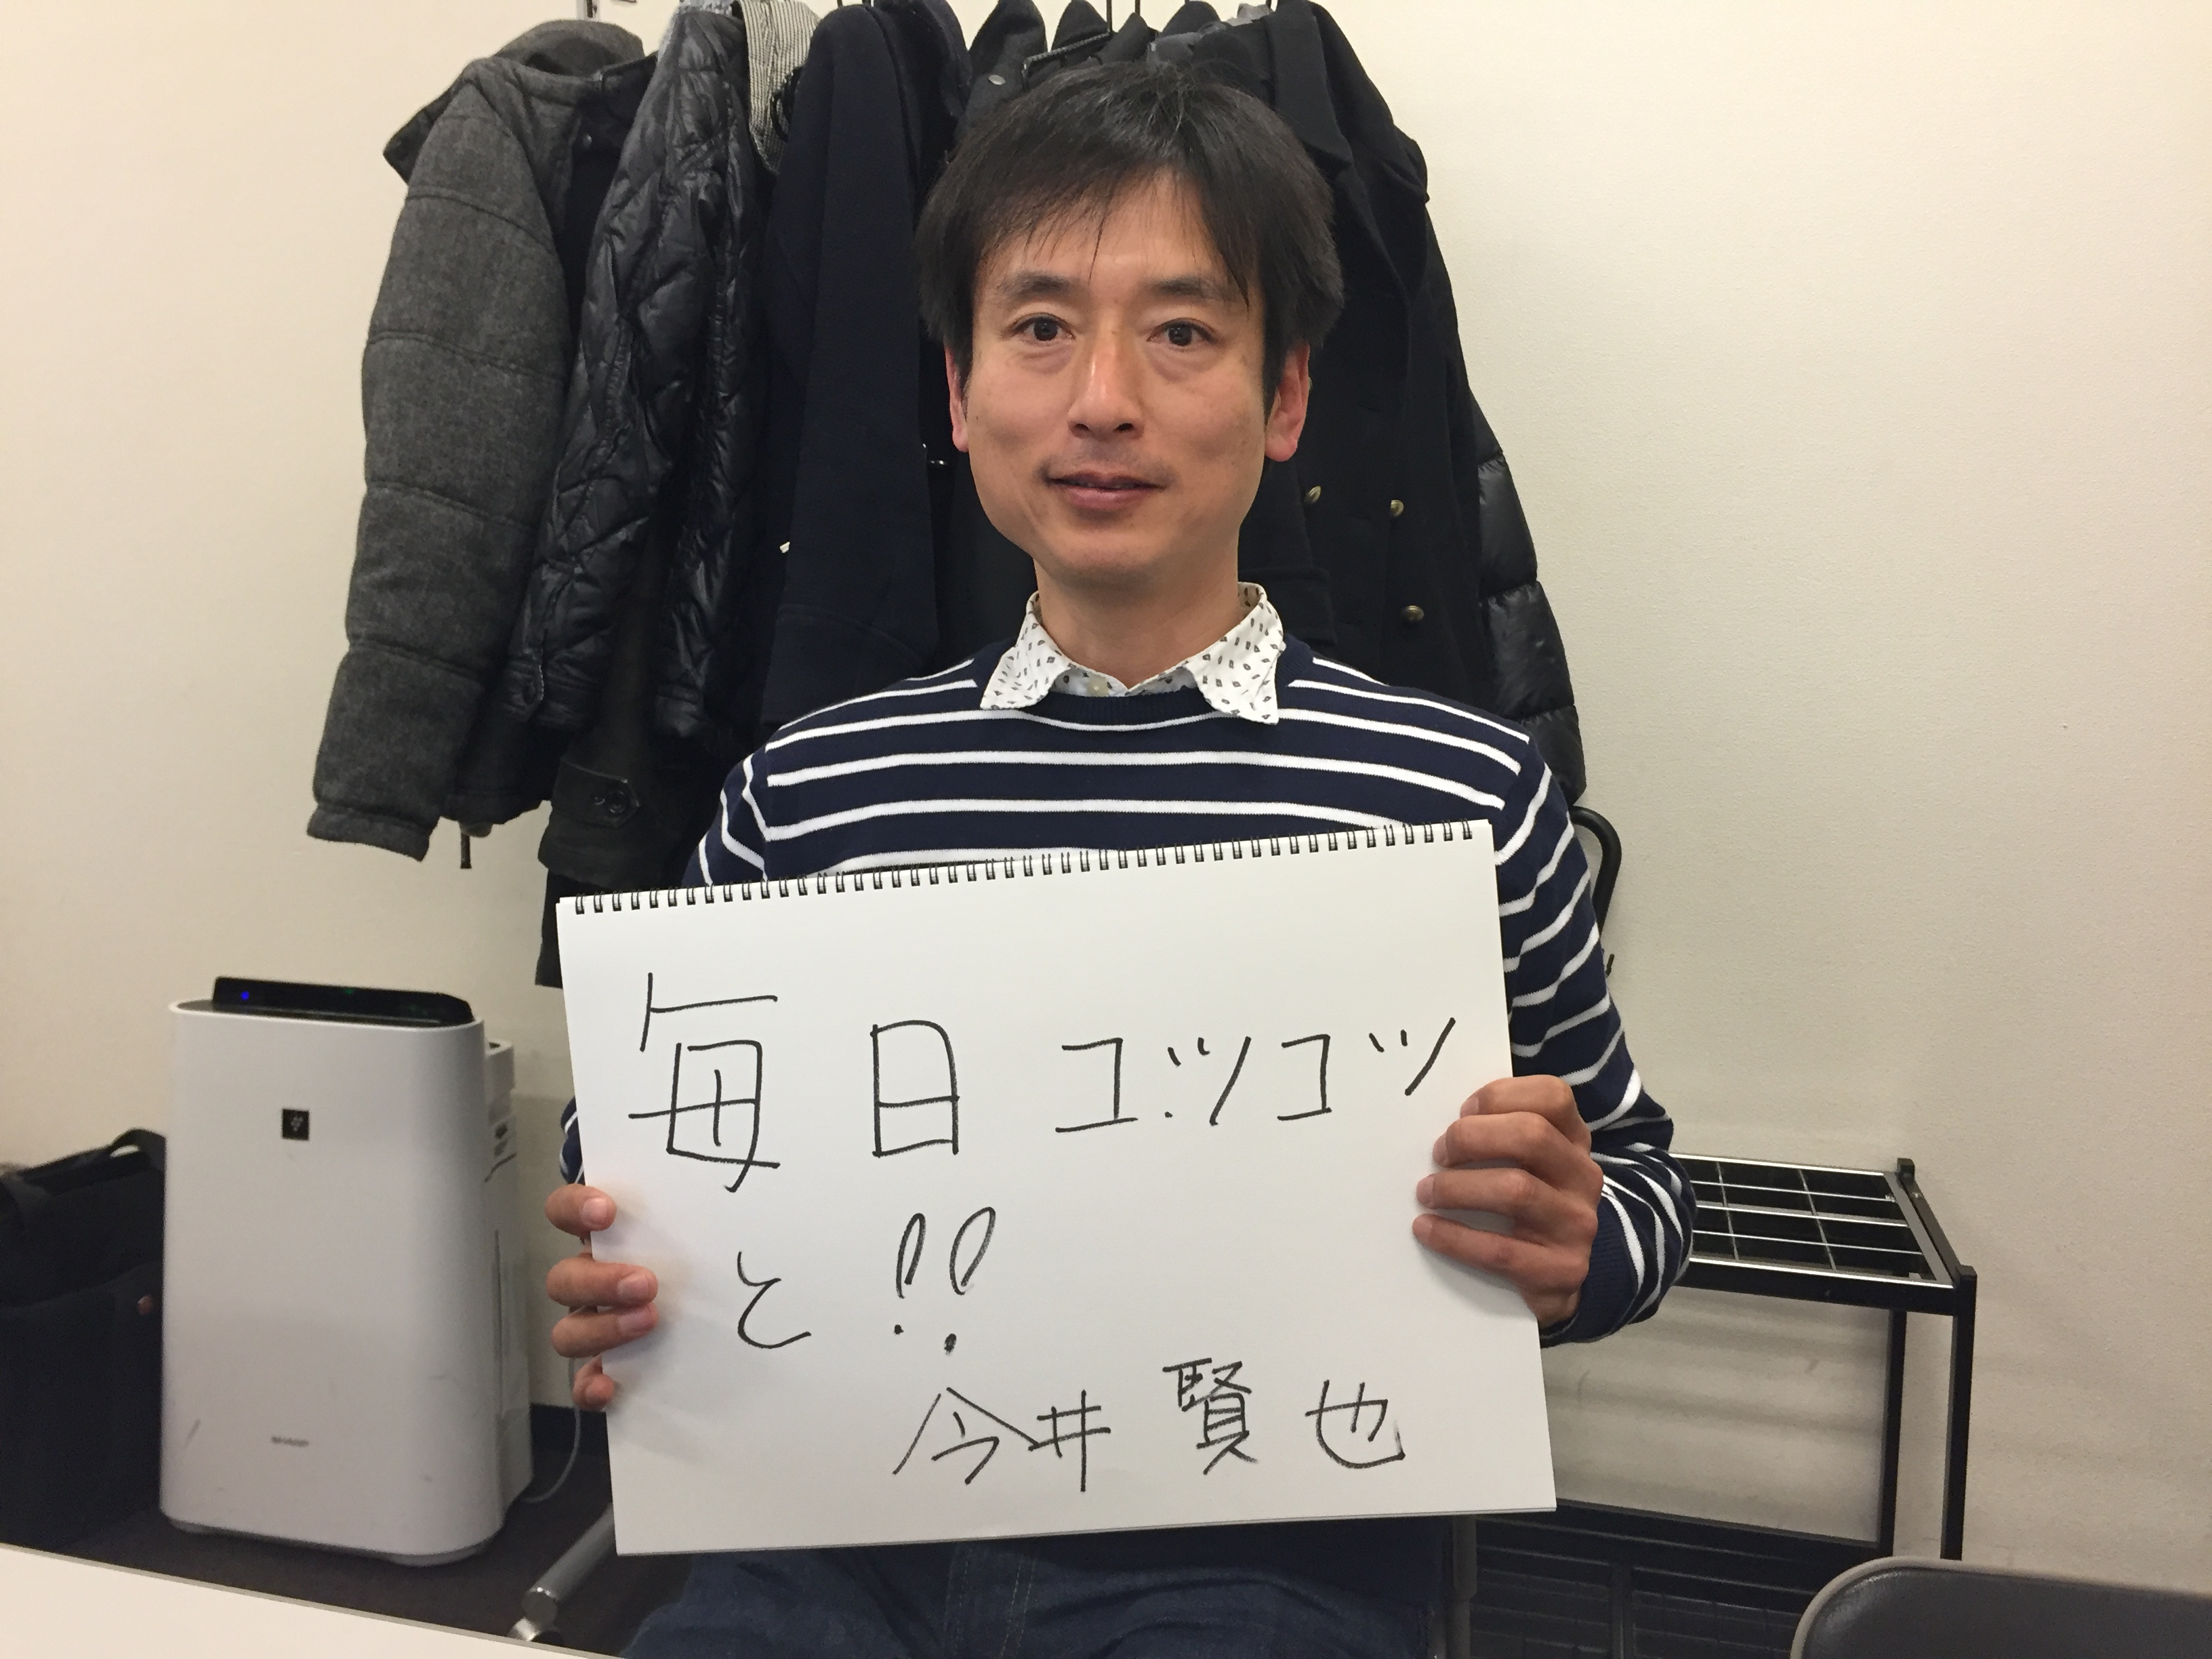 毎日コツコツ
と!!
今井賢也
SHARP